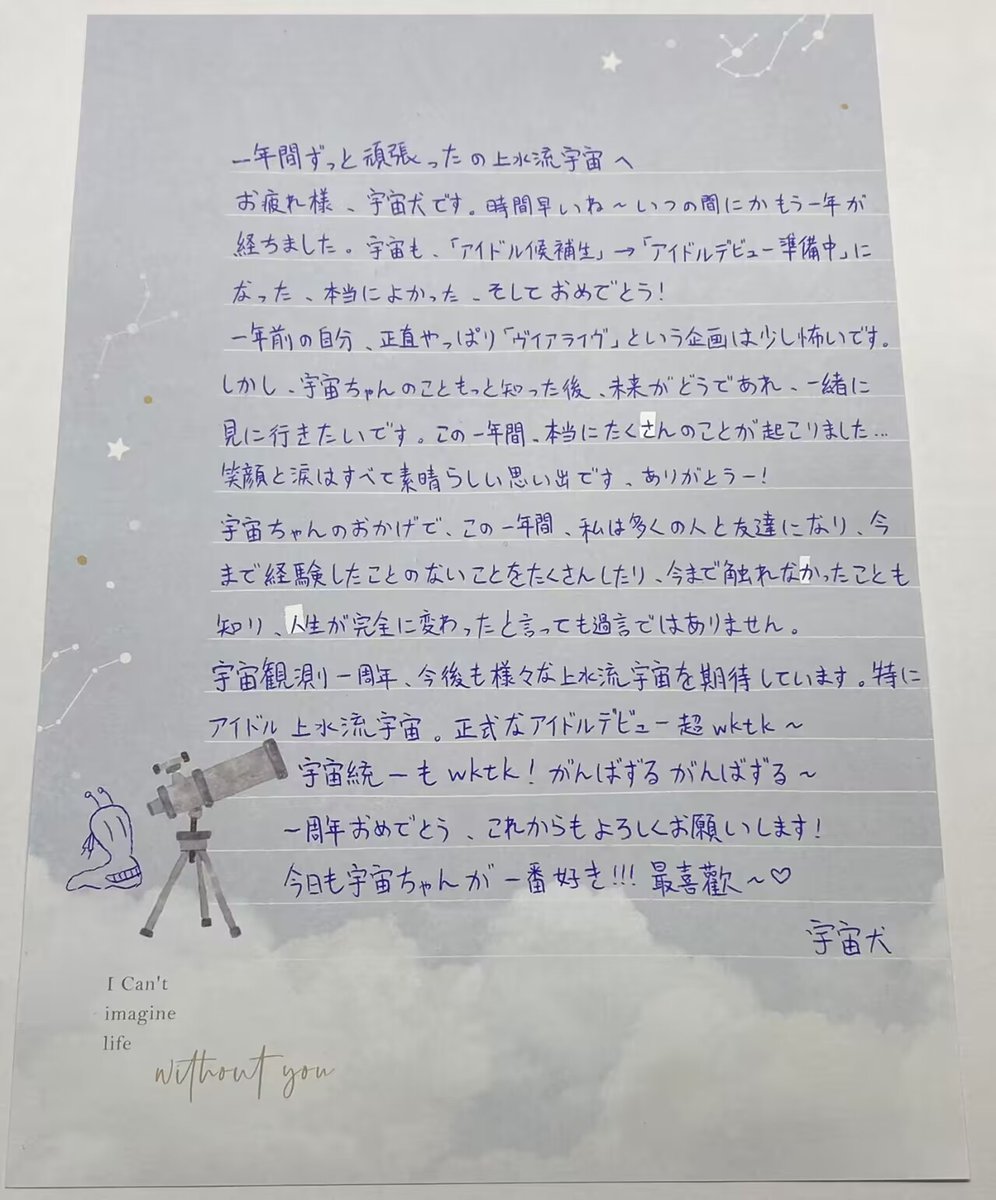 一年間ずっと頑張ったの上水流宇宙へ
お疲れ様、宇宙犬です。時間早いね～いつの間にかもう一年が
経ちました。宇宙も、「アイドル候補生」→「アイドルデビュー準備中」に
なった、本当によかった、そしておめでとう！
一年前の自分、正直やっぱり「ヴイアライヴ」という企画は少し怖いです。
しかし、宇宙ちゃんのこともっと知った後、未来がどうであれ、一緒に
見に行きたいです。この一年間、本当にたくさんのことが起こりました…
笑顔と涙はすべて素晴らしい思い出です、ありがとうー！
宇宙ちゃんのおかげで、この一年間、私は多くの人と友達になり、今
まで経験したことのないことをたくさんしたり、今まで触れなかったことも
知り、人生が完全に変わったと言っても過言ではありません。
宇宙観測り一周年、今後も様々な上水流宇宙を期待しています。特に
アイドル上水流宇宙。正式なアイドルデビュー超wktk～
宇宙統一もwktk！がんばずるがんばずる～
一周年おめでとう、これからもよろしくお願いします！
今日も宇宙ちゃんが一番好き!!! 最喜歡～♡
宇宙犬
I Can't
imagine
life
without you